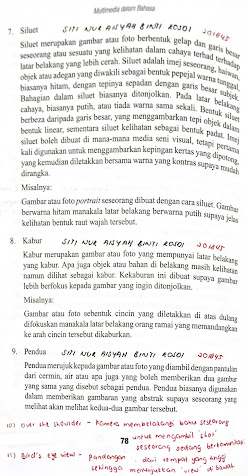 Multimedia dalam Bahasa
7. Siluet SITI NUR AISYAH BINTI ROSDI 201845
Siluet merupakan gambar atau foto berbentuk gelap dan garis besar
seseorang atau sesuatu yang kelihatan dalam cahaya terhad terhadap
latar belakang yang lebih cerah. Siluet adalah imej seseorang, haiwan,
objek atau adegan yang diwakili sebagai bentuk pepejal warna tunggal,
biasanya hitam, dengan tepinya sepadan dengan garis besar subjek.
Bahagian dalam siluet biasanya ditonjolkan. Pada latar belakang
cahaya, biasanya putih, atau tiada warna sama sekali. Bentuk siluet
berbeza daripada garis besar, yang menggambarkan tepi objek dalam
bentuk linear, sementara siluet kelihatan sebagai bentuk padat. Imej
siluet boleh dibuat di mana-mana media seni visual, tetapi pertama
kali digunakan untuk menggambarkan kepingan kertas yang dipotong,
yang kemudian diletakkan bersama warna yang kontras supaya mudah
dirangka.
Misalnya:
Gambar atau foto portrait seseorang dibuat dengan cara siluet. Gambar
berwarna hitam manakala latar belakang berwarna putih supaya jelas
kelihatan bentuk raut wajah tersebut.
8. Kabur SITI NUR AISYAH BINTI ROSDI 201845
Kabur merupakan gambar atau foto yang mempunyai latar belakang
yang kabur. Apa juga objek atau bahan di belakang masih kelihatan
namun dilihat sebagai kabur. Kekaburan ini dibuat supaya gambar
lebih berfokus kepada gambar yang ingin ditonjolkan.
Misalnya:
Gambar atau foto sebentuk cincin yang diletakkan di atas dulang
difokuskan manakala latar belakang orang ramai yang memandangkan
ke arah cincin tersebut dikaburkan.
9. Pendua SITI NUR AISYAH BINTI ROSDI 201845
Pendua merujuk kepada gambar atau foto yang diambil dengan pantulan
dari cermin, air atau apa juga yang boleh memberikan dua gambar
yang sama yang disebut sebagai pendua. Pendua biasanya digunakan
dalam memberikan gambaran yang abstrak supaya seseorang yang
melihat akan melihat kedua-dua gambar tersebut.
10) Over the shoulder - Kamera membelakangi bahu seseorang
untuk mengambil shot
78
seseorang sedang berkomunikasi
11) Bird's eye view - pandangan dari tempat yang tinggi
sehingga menunjukkan view di bawah